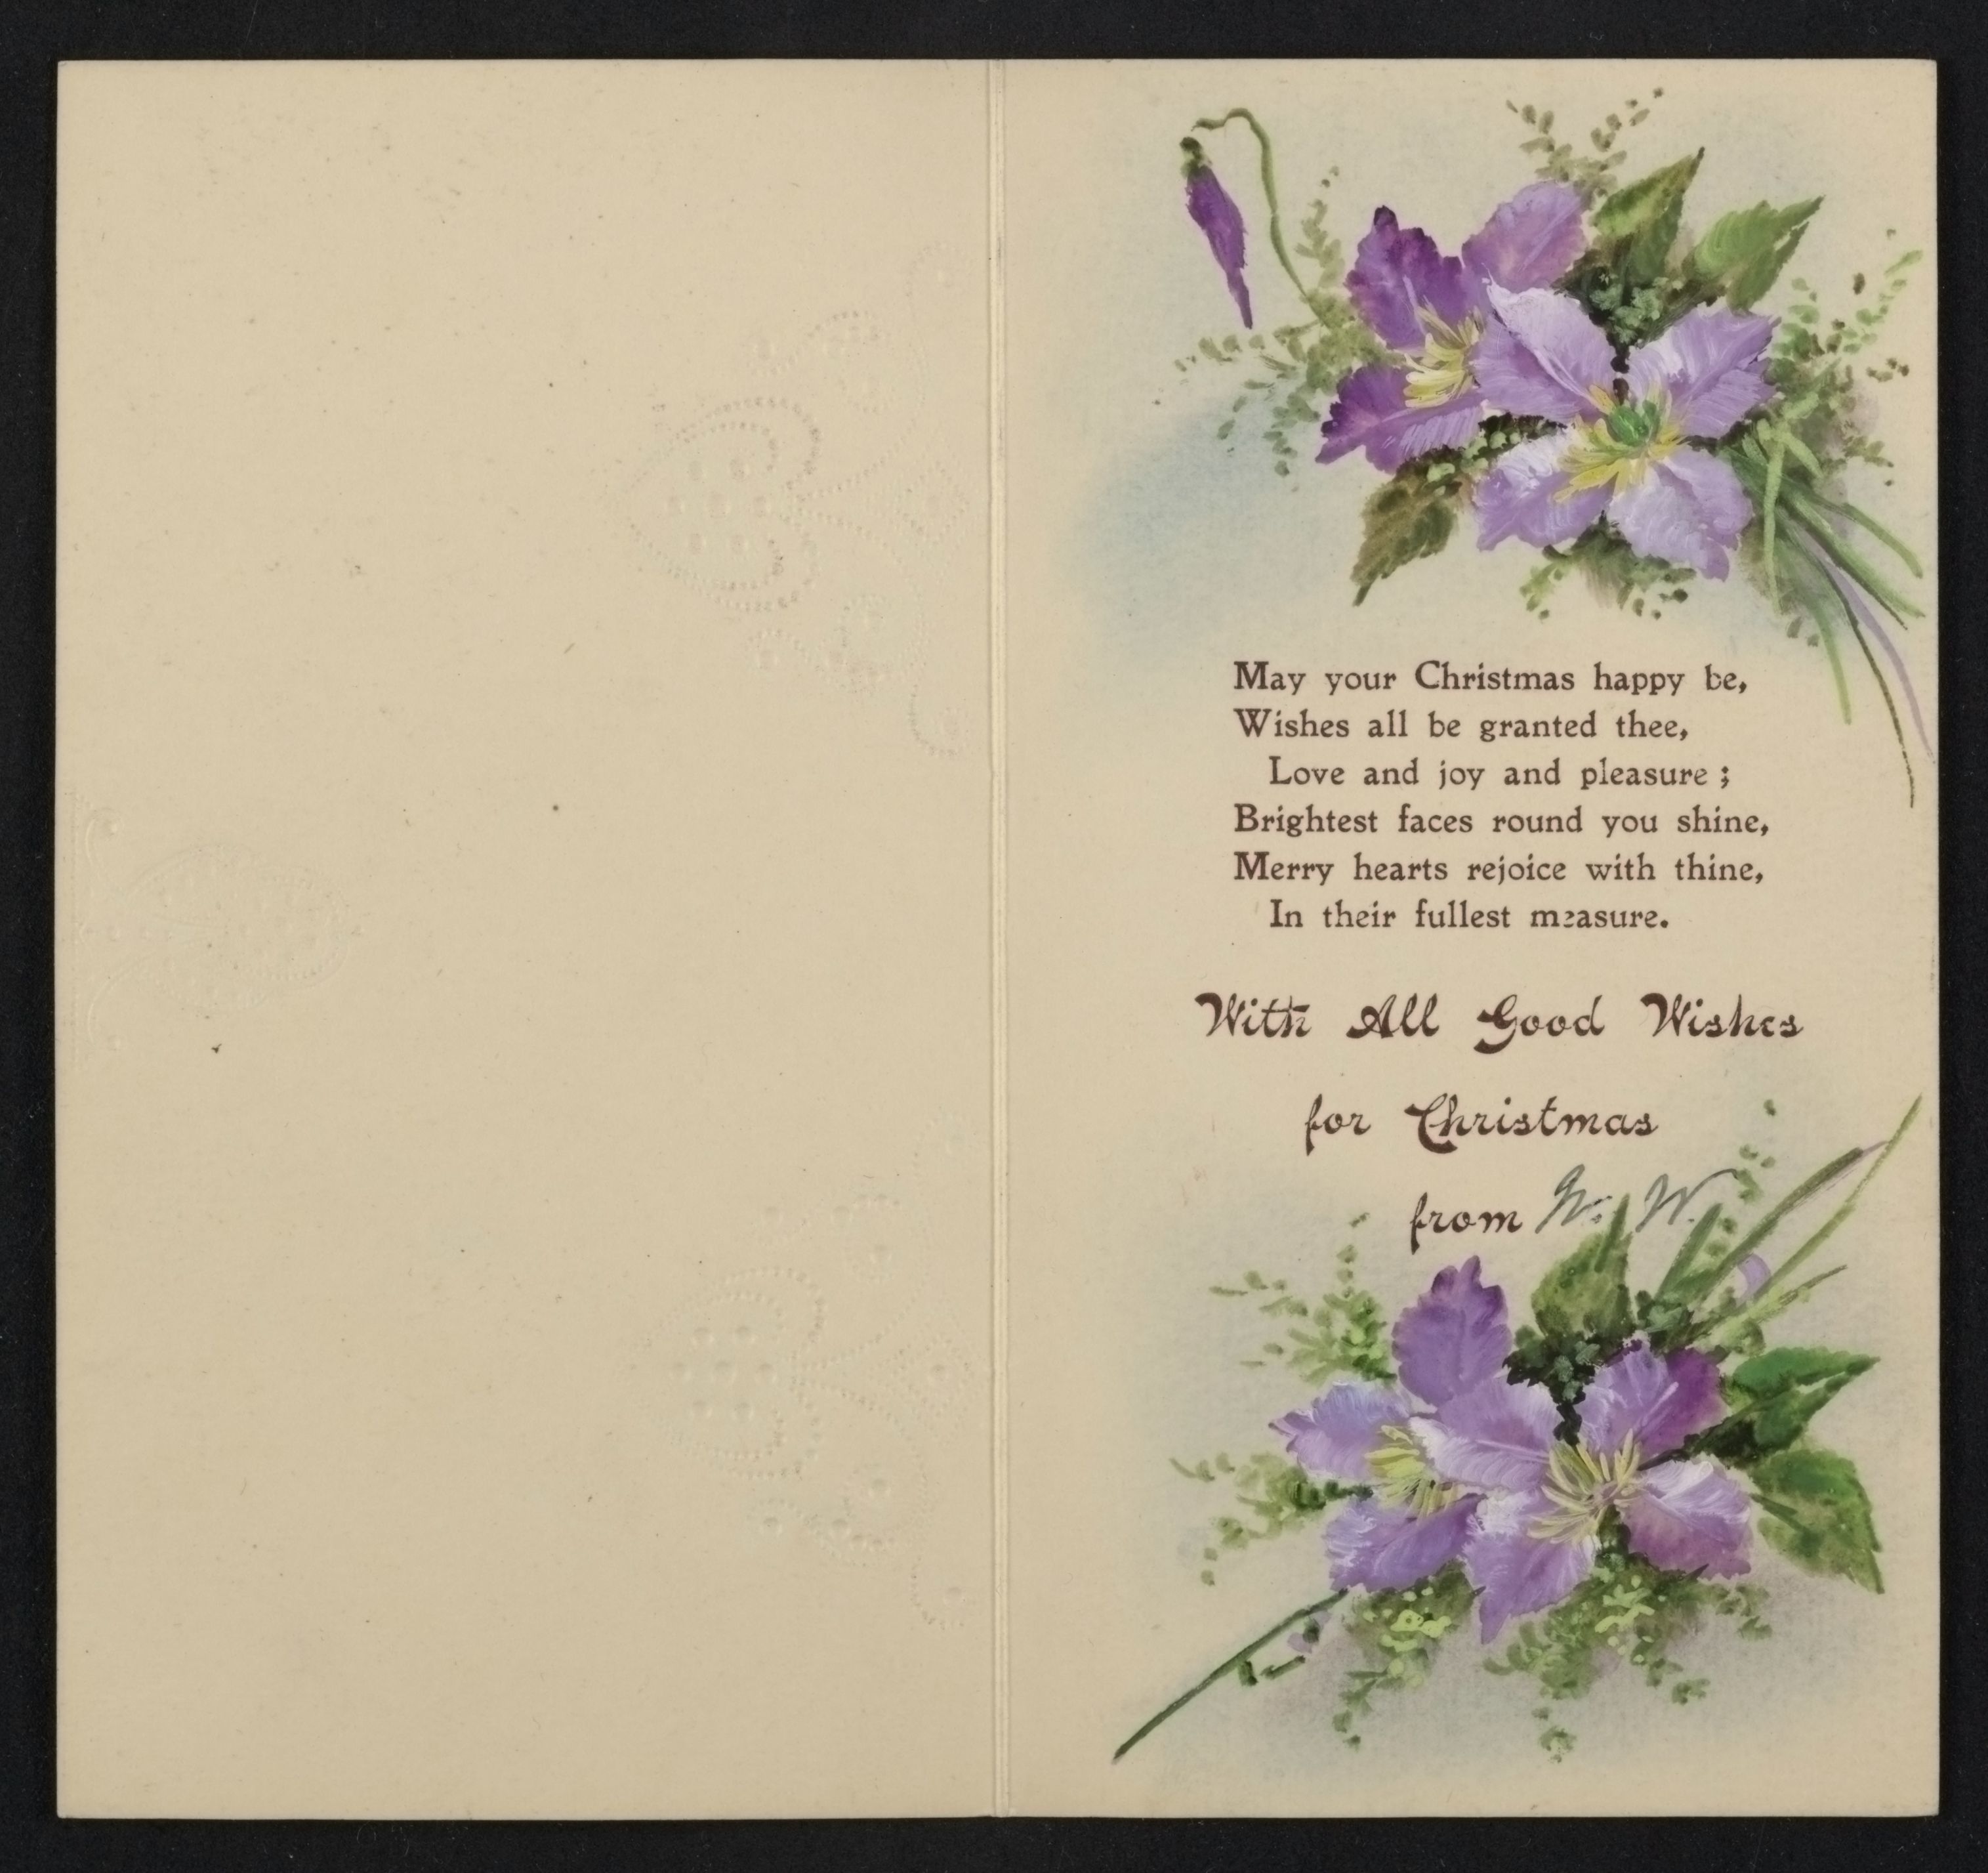 May your Christmas happy be,
Wishes all be granted thee,
Love and joy and pleasure ;
Brightest faces round you shine,
Merry hearts rejoice with thine,
In their fullest measure.
With All Good Wishes
for Christmas
from W. W.